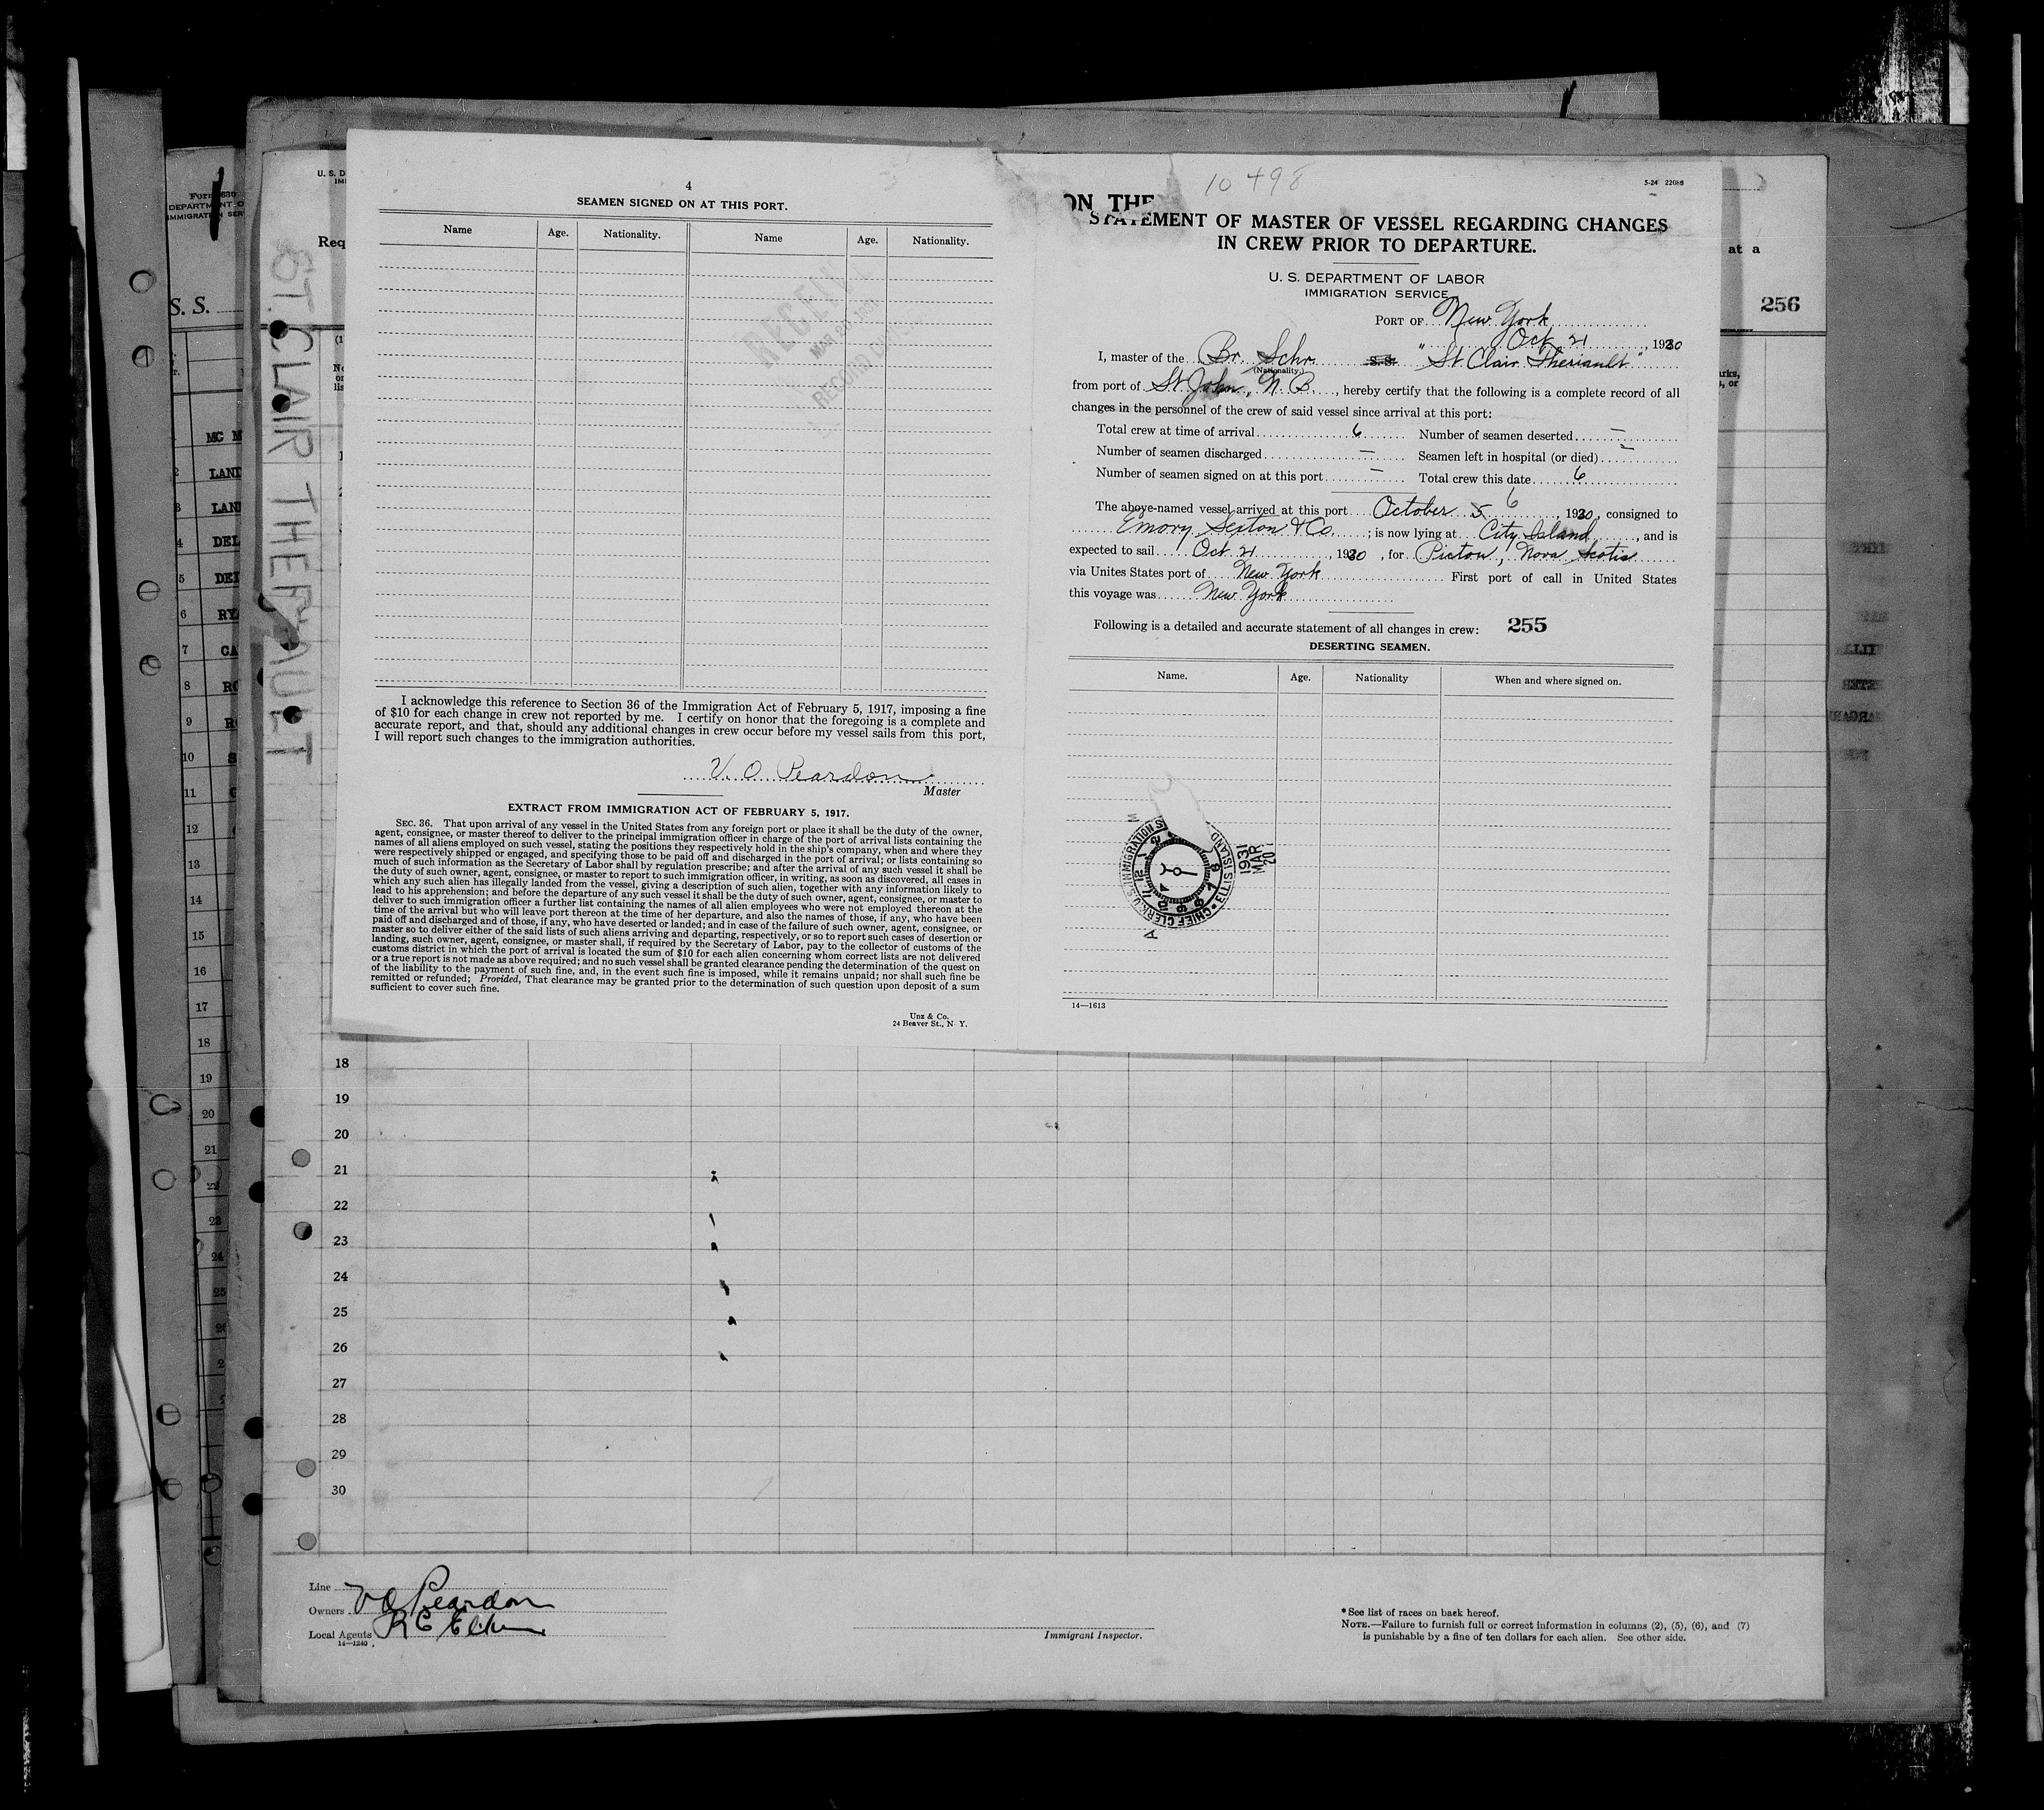 4
SEAMEN SIGNED ON AT THIS PORT.
Name Age. Nationality. Name Age. Nationality.
RECEIV
MAR 20 1931
RECORD DIVIS
I acknowledge this reference to Section 36 of the Immigration Act of February 5, 1917, imposing a fine
of $10 for each change in crew not reported by me. I certify on honor that the foregoing is a complete and
accurate report, and that, should any additional changes in crew occur before my vessel sails from this port,
I will report such changes to the immigration authorities.
V. O. Peardon
Master
EXTRACT FROM IMMIGRATION ACT OF FEBRUARY 5, 1917.
SEC. 36. That upon arrival of any vessel in the United States from any foreign port or place it shall be the duty of the owner,
agent, consignee, or master thereof to deliver to the principal immigration officer in charge of the port of arrival lists containing the
names of all aliens employed on such vessel, stating the positions they respectively hold in the ship's company, when and where they
were respectively shipped or engaged, and specifying those to be paid off and discharged in the port of arrival; or lists containing so
much of such information as the Secretary of Labor shall by regulation prescribe; and after the arrival of any such vessel it shall be
the duty of such owner, agent, consignee, or master to report to such immigration officer, in writing, as soon as discovered, all cases in
which any such alien has illegally landed from the vessel, giving a description of such alien, together with any information likely to
lead to his apprehension; and before the departure of any such vessel it shall be the duty of such owner, agent, consignee, or master to
deliver to such immigration officer a further list containing the names of all alien employees who were not employed thereon at the
time of the arrival but who will leave port thereon at the time of her departure, and also the names of those, if any, who have been
paid off and discharged and of those, if any, who have deserted or landed; and in case of the failure of such owner, agent, consignee, or
master so to deliver either of the said lists of such aliens arriving and departing, respectively, or so to report such cases of desertion or
landing, such owner, agent, consignee, or master shall, if required by the Secretary of Labor, pay to the collector of customs of the
customs district in which the port of arrival is located the sum of $10 for each alien concerning whom correct lists are not delivered
or a true report is not made as above required; and no such vessel shall be granted clearance pending the determination of the quest on
of the liability to the payment of such fine, and, in the event such fine is imposed, while it remains unpaid; nor shall such fine be
remitted or refunded; Provided, That clearance may be granted prior to the determination of such question upon deposit of a sum
sufficient to cover such fine.
Unz & Co.
24 Beaver St., N Y.
10498
5-24 22086
ON THE
STATEMENT OF MASTER OF VESSEL REGARDING CHANGES
IN CREW PRIOR TO DEPARTURE.
U. S. DEPARTMENT OF LABOR
IMMIGRATION SERVICE
PORT OF New York
Oct 21, 1930
I, master of the Br. Schr. S.S. "St Clair Theriault"
(Nationality.)
from port of St John, N. B., hereby certify that the following is a complete record of all
changes in the personnel of the crew of said vessel since arrival at this port:
Total crew at time of arrival 6 Number of seamen deserted —
Number of seamen discharged — Seamen left in hospital (or died) —
Number of seamen signed on at this port — Total crew this date 6
The above-named vessel arrived at this port October 5 6, 1930, consigned to
Emory Sexton & Co. ; is now lying at City Island, and is
expected to sail Oct 21, 1930, for Pictou, Nova Scotia
via Unites States port of New York First port of call in United States
this voyage was New York
Following is a detailed and accurate statement of all changes in crew: 255
DESERTING SEAMEN.
Name. Age. Nationality When and where signed on.
CHIEF CLERK U.S. IMMIGRATION S ELLIS ISLAND
1931
MAR
20
14—1613
256
at a
ST. CLAIR THERIAULT
S. S.
18
19
20
21
22
23
24
25
26
27
28
29
30
Line
Owners V O Peardon
Local Agents
14—1240
Immigrant Inspector.
* See list of races on back hereof.
NOTE.—Failure to furnish full or correct information in columns (2), (5), (6), and (7)
is punishable by a fine of ten dollars for each alien. See other side.